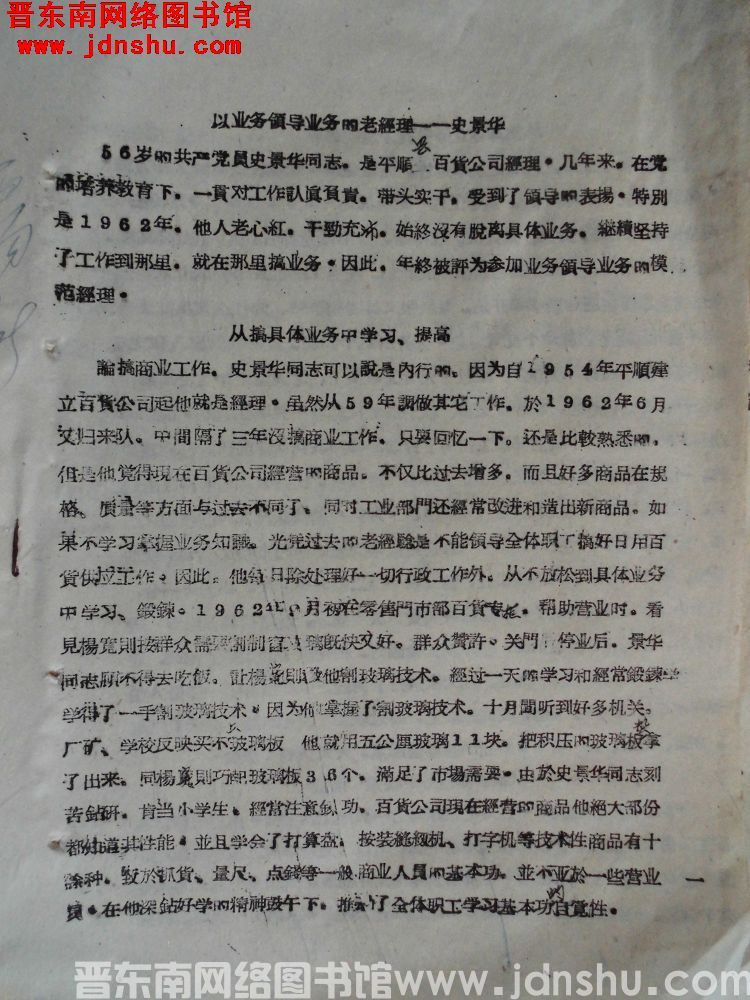 晋东南网络图书馆
www.jdnshu.com
以业务領导业务的老經理——史景华
56岁的共产党員史景华同志。是平順县百貨公司經理·几年来。在党
的培养教育下。一貫对工作認眞負責。带头实干。受到了領导的表揚·特別
是1962年。他人老心紅。干勁充沛。始終沒有脱离具体业务。継續坚持
了工作到那里。就在那里搞业务·因此。年終被評为参加业务領导业务的模
范經理·
从搞具体业务中学习、提高
論搞商业工作。史景华同志可以說是內行的。因为自1954年平順建
立百貨公司起他就是經理·虽然从59年調做其它工作。於1962年6月
又归来队。中間隔了三年沒搞商业工作。只要回忆一下。还是比較熟悉的。
但是他覚得現在百貨公司經营的商品。不仅比过去增多。而且好多商品在規
格、质量等方面与过去不同了、同时工业部門还經常改进和造出新商品。如
果不学习掌握业务知識。光凭过去的老經験是不能領导全体职工搞好日用百
貨供应工作。因此。他每日除处理好一切行政工作外。从不放松到具体业务
中学习、鍛鍊·1962年 月初在零售門市部百貨专 。帮助营业时。看
見楊寬則按群众需要割制 玻璃既快又好。群众赞許·关門停业后。景华
同志顾不得去吃飯。让楊寬則教他割玻璃技术。經过一天的学习和經常鍛鍊
学得了一手割玻璃技术·因为他掌握了割玻璃技术。十月間听到好多机关。
厂矿、学校反映买不玻璃板 他就用五公厘玻璃11块。把积压的玻璃板拿
了出来。同楊寬則巧配玻璃板36个。滿足了市場需要·由於史景华同志刻
苦鉆研。肯当小学生。經常注意 功。百貨公司現在經营的商品他絕大部份
都知道其性能·並且学会了打算盘。按装縫級机、打字机等技术性商品有十
余种。致於抓貨、量尺、点錢等一般商业人員的基本功。並不亚於一些营业
員·在他深鉆好学的精神鼓午下。推动了全体职工学习基本功的自覚性·
一
晋东南网络图书馆www.jdnshu.com